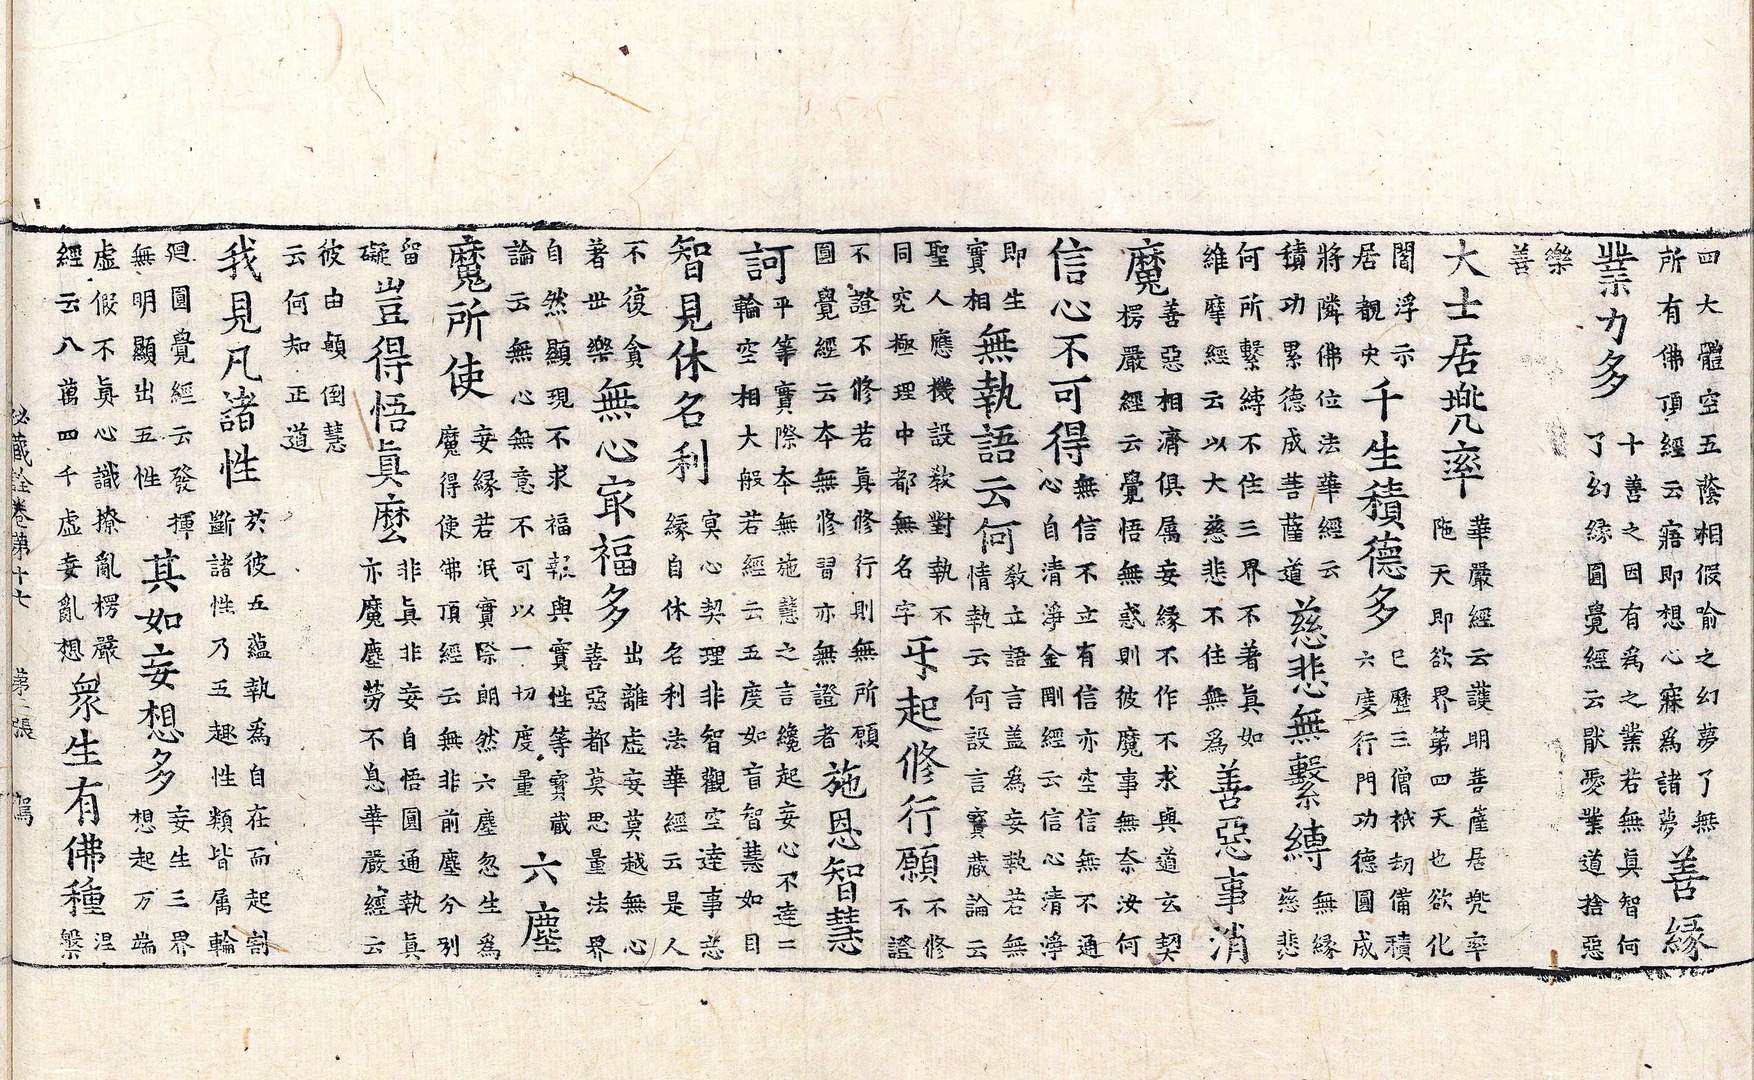 四大體空五蔭相假喻之幻夢了無
所有佛頂經云寤即想心寐為諸夢
善緣
業力多
十善之因有為之業若無真智何
了幻緣圓覺經云猒愛業道捨惡
樂
善
大士居兜率
華嚴經云護明菩薩居兜率
陁天即欲界第四天也欲化
閻浮示
居觀史
千生積德多
已歷三僧祇刧備積
六度行門功德圓成
將隣佛位法華經云
積功累德成菩薩道
慈悲無繫縛
無緣
慈悲
何所繫縛不住三界不著真如
維摩經云以大慈悲不住無為
善惡事消
魔
善惡相濟俱属妄緣不作不求與道玄契
楞嚴經云覺悟無惑則彼魔事無奈汝何
信心不可得
無信不立有信亦空信無不通
心自清淨金剛經云信心清淨
即生
實相
無執語云何
教立語言盖為妄執若無
情執云何設言寶藏論云
聖人應機設教對執不
同究極理中都無名字
牙起修行願
不修
不證
不證不修若真修行則無所願
圓覺經云本無修習亦無證者
施恩智慧
訶
平等實際本無施慧之言纔起妄心不達二
輪空相大般若經云五度如盲智慧如目
智見休名利
冥心契理非智觀空達事忘
緣自休名利法華經云是人
不復貪
著世樂
無心㝡福多
出離虛妄莫越無心
善惡都莫思量法界
自然顯現不求福報與實性等寶藏
論云無心無意不可以一切度量
六塵
魔所使
妄緣若泯實際朗然六塵忽生為
魔得使佛頂經云無非前塵分別
留
礙
豈得悟真麼
非真非妄自悟圓通執真
亦魔塵勞不息華嚴經云
彼由顛倒慧
云何知正道
我見凡諸性
於彼五蘊執為自在而起割
斷諸性乃五趣性類皆属輪
廻圓覺經云發揮
無明顯出五性
其如妄想多
妄生三界
想起万端
虛假不真心識撩亂楞嚴
經云八萬四千虛妄亂想
眾生有佛種
涅
槃
秘藏詮卷第十七 第二張 駕